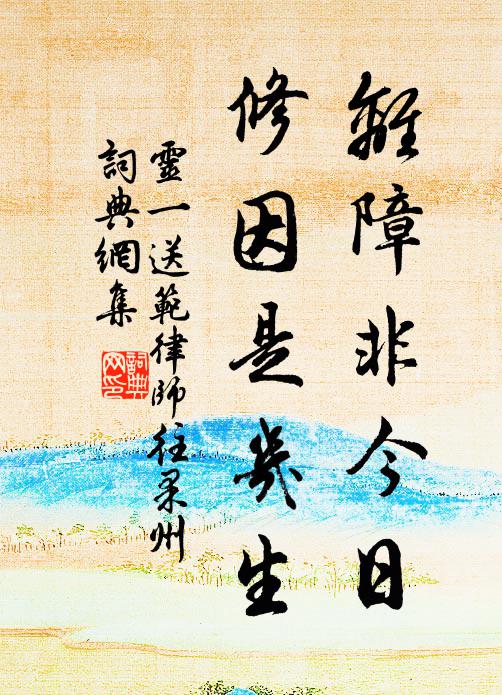 離障非今日
修因是幾生
靈一送範律師往果州
詞典網集
詞典
網印